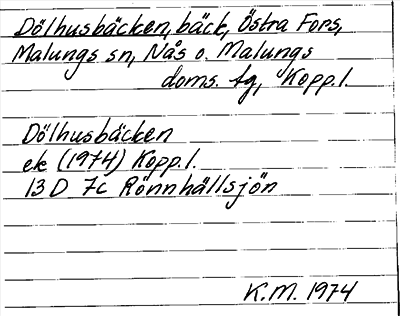 Dölhusbäcken, bäck, Östra Fors,
Malungs sn, Nås o. Malungs
doms. tg, Kopp. l.
Dölhusbäcken
ek (1974) Kopp. l.
13 D 7c Rönnhällsjön
K.M. 1974